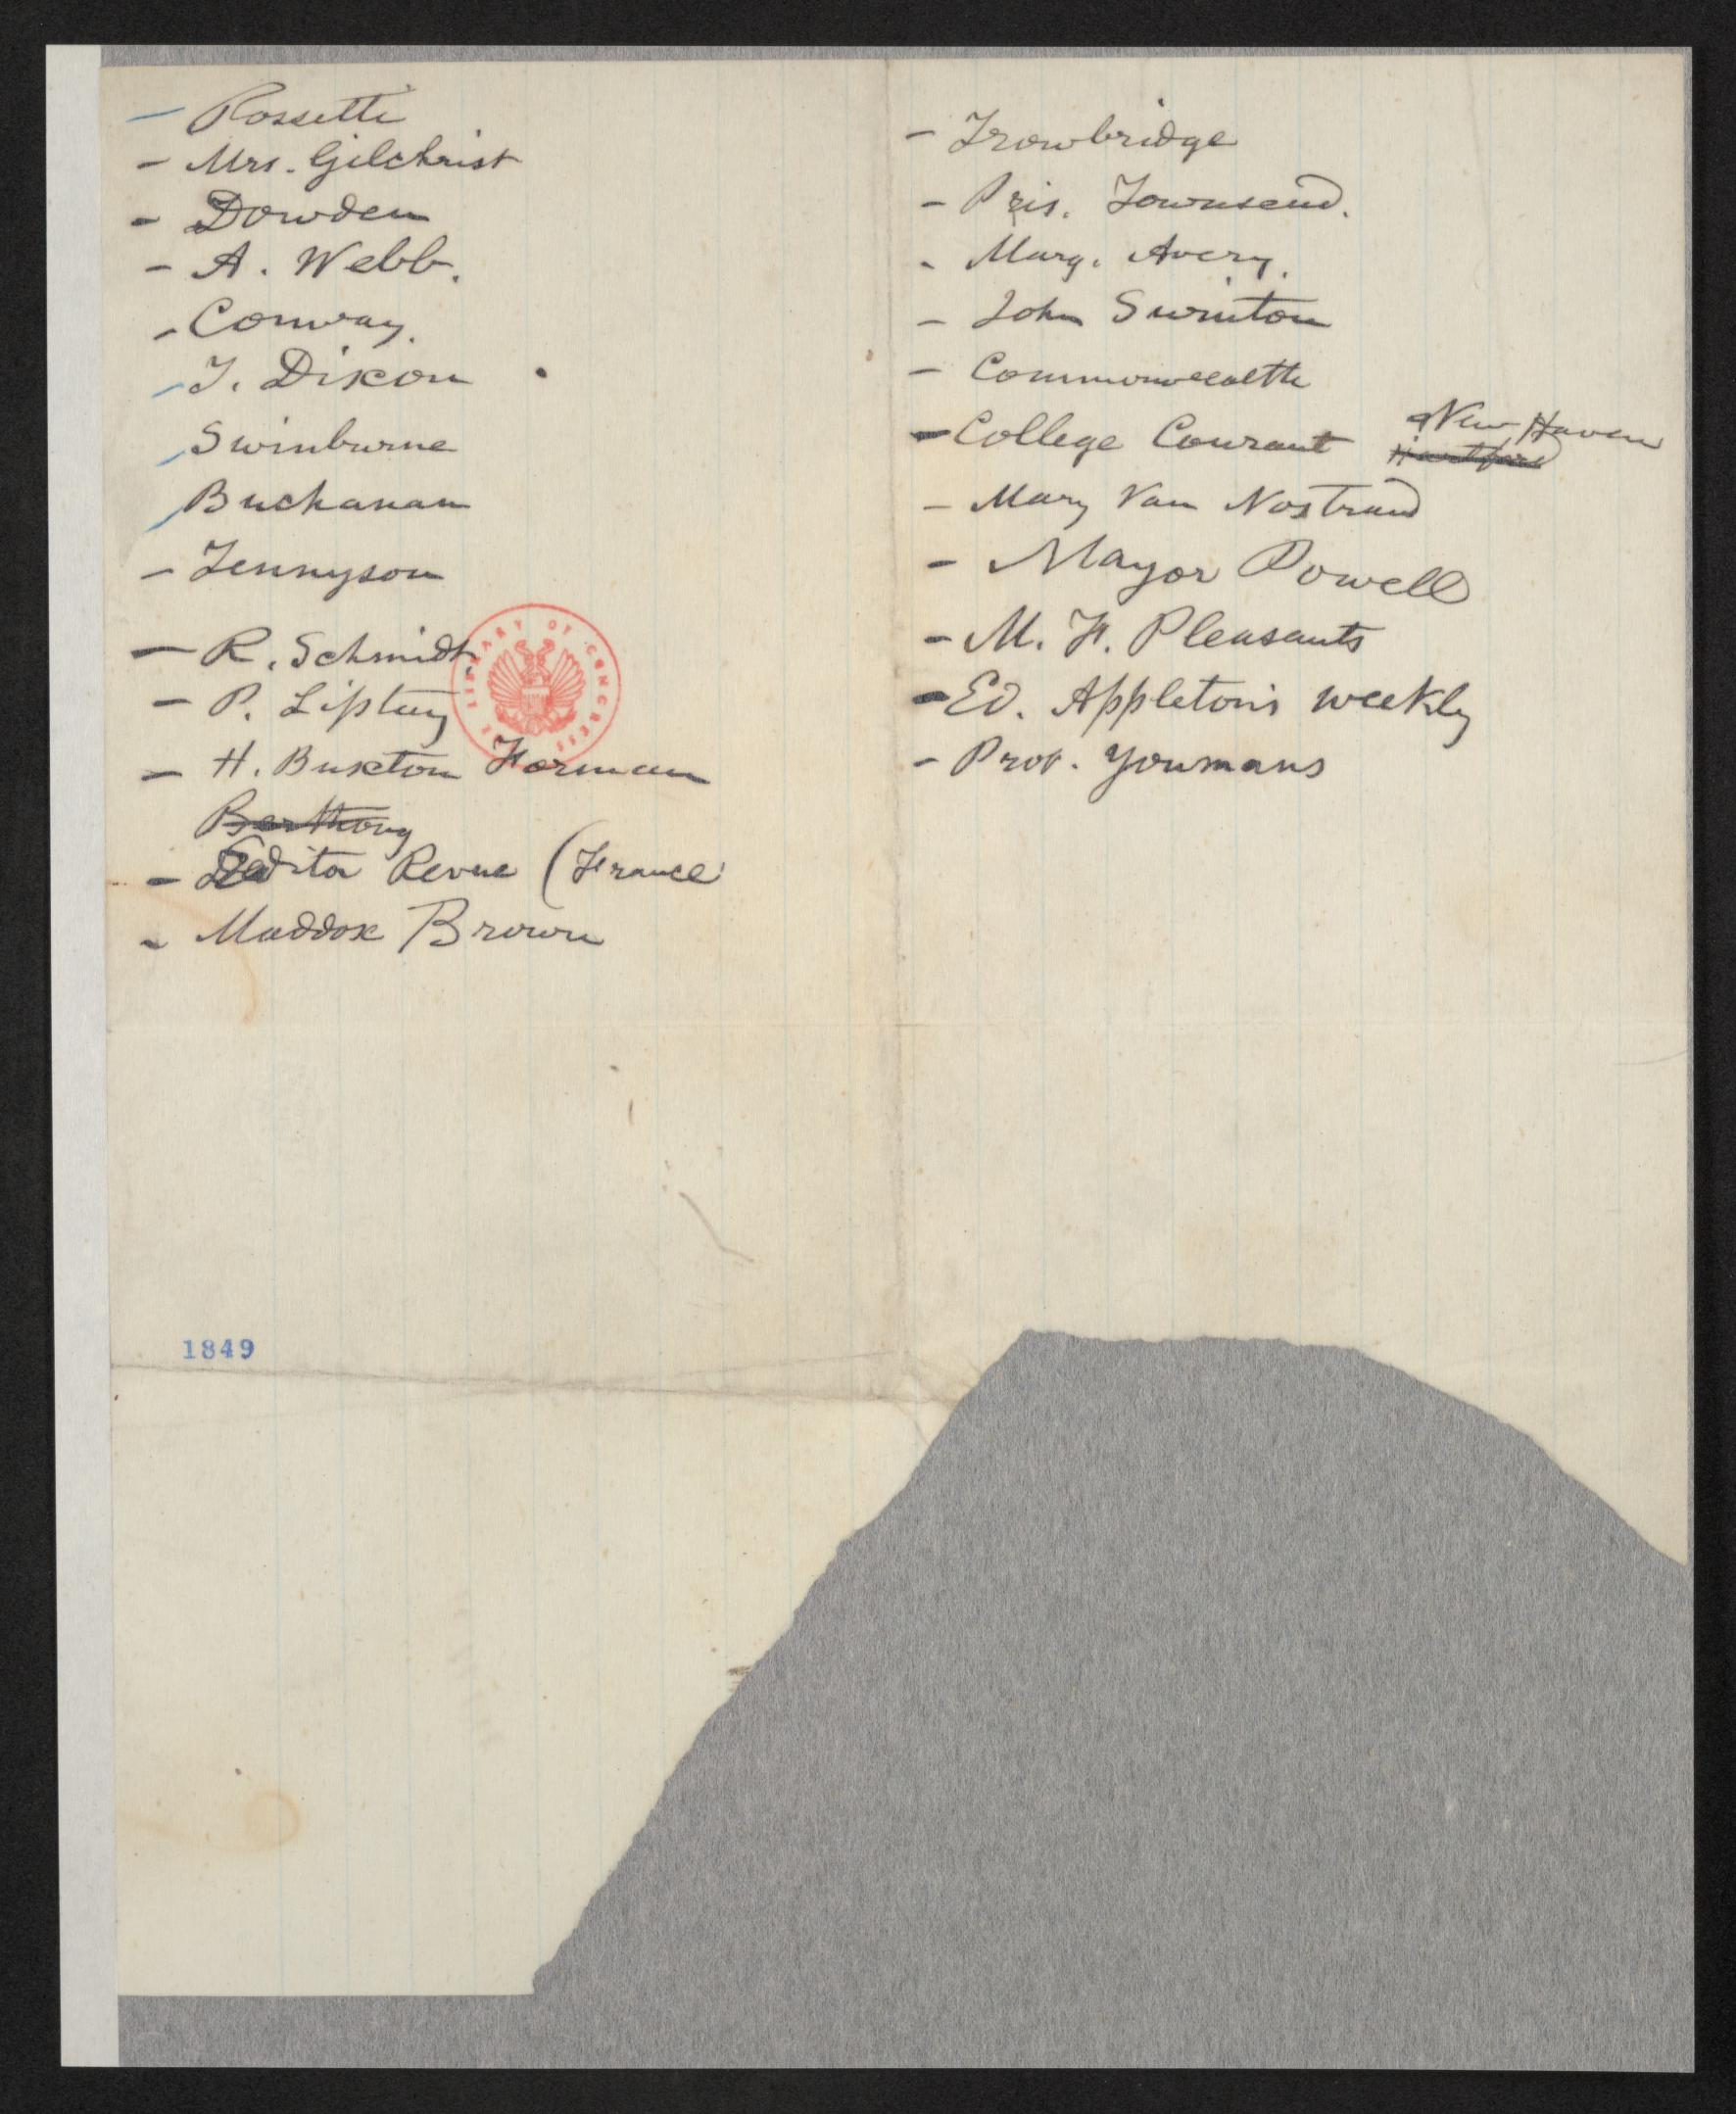 - Rossetti
- Mrs. Gilchrist
- Dowden
- A. Webb.
- Conway.
- T. Dixon
- Swinburne
- Buchanan
- Tennyson
- R. Schmidt
- P. Liptug
- H. Buxton Forman
- Editor Revue (France
- Maddox Brown
- Trowbridge
- Pris. Townsend.
- Marg. Avery.
- John Swinton
- Commonwealth
- College Courant New Haven
Hartford
- Mary Van Nostrand
- Mayor Powell
- M. F. Pleasants
- Ed. Appleton's weekly
- Prof. Youmans
LIBRARY OF CONGRESS
1849